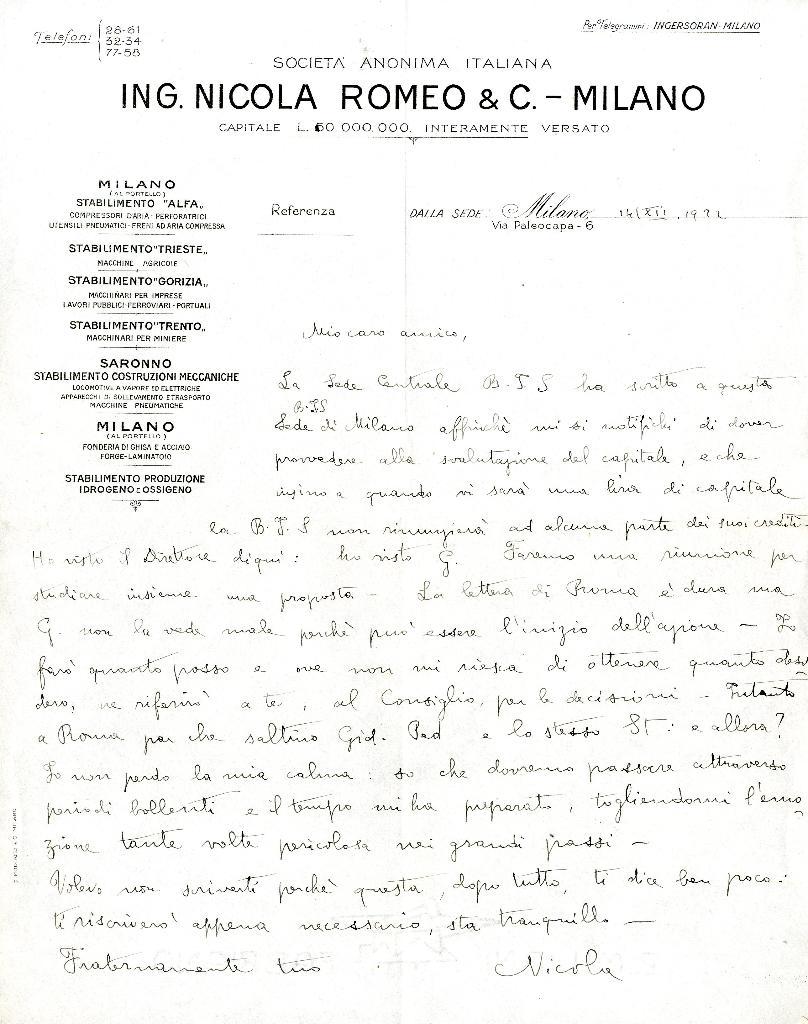 Telefoni 28-61
32-34
77-58
Per Telegrammi: INGERSORAN-MILANO
SOCIETÀ ANONIMA ITALIANA
ING. NICOLA ROMEO & C. – MILANO
CAPITALE L. 50.000.000. INTERAMENTE VERSATO
MILANO
(AL PORTELLO)
STABILIMENTO "ALFA„
COMPRESSORI D'ARIA - PERFORATRICI
UTENSILI PNEUMATICI - FRENI AD ARIA COMPRESSA
STABILIMENTO "TRIESTE„
MACCHINE AGRICOLE
STABILIMENTO "GORIZIA„
MACCHINARI PER IMPRESE
LAVORI PUBBLICI - FERROVIARI - PORTUALI
STABILIMENTO "TRENTO„
MACCHINARI PER MINIERE
SARONNO
STABILIMENTO COSTRUZIONI MECCANICHE
LOCOMOTIVE A VAPORE ED ELETTRICHE
APPARECCHI DI SOLLEVAMENTO E TRASPORTO
MACCHINE PNEUMATICHE
MILANO
(AL PORTELLO)
FONDERIA DI GHISA E ACCIAIO
FORGE - LAMINATOIO
STABILIMENTO PRODUZIONE
IDROGENO E OSSIGENO
Referenza
DALLA SEDE: Milano, 14/XII, 192
Via Paleocapa - 6
Mio caro amico,
La Sede Centrale B.I.S ha scritto a questa
B.I.S
Sede di Milano affinchè mi si notifichi di dover
provvedere alla svalutazione del capitale, e che
insino a quando vi sarà una lira di capitale
la B.I.S non rinunzierà ad alcuna parte dei suoi crediti.
Ho visto il Direttore di qui: ho visto G. Faremo una riunione per
studiare insieme una proposta – La lettera di Roma è dura ma
G. non la vede male perchè può essere l'inizio dell'azione – Io
farò quanto posso e ove non mi riesca di ottenere quanto desi
dero, ne riferirò a te, al Consiglio, per le decisioni – Intanto
a Roma par che saltino Gid. e lo stesso St: e allora?
Io non perdo la mia calma: so che dovremo passare attraverso
periodi bollenti e il tempo mi ha preparato, togliendomi l'emo
zione tante volte pericolosa nei grandi passi –
Volevo non scriverti perchè questa, dopo tutto, ti dice ben poco:
ti riscriverò appena necessario, sta tranquillo –
Fraternamente tuo Nicola